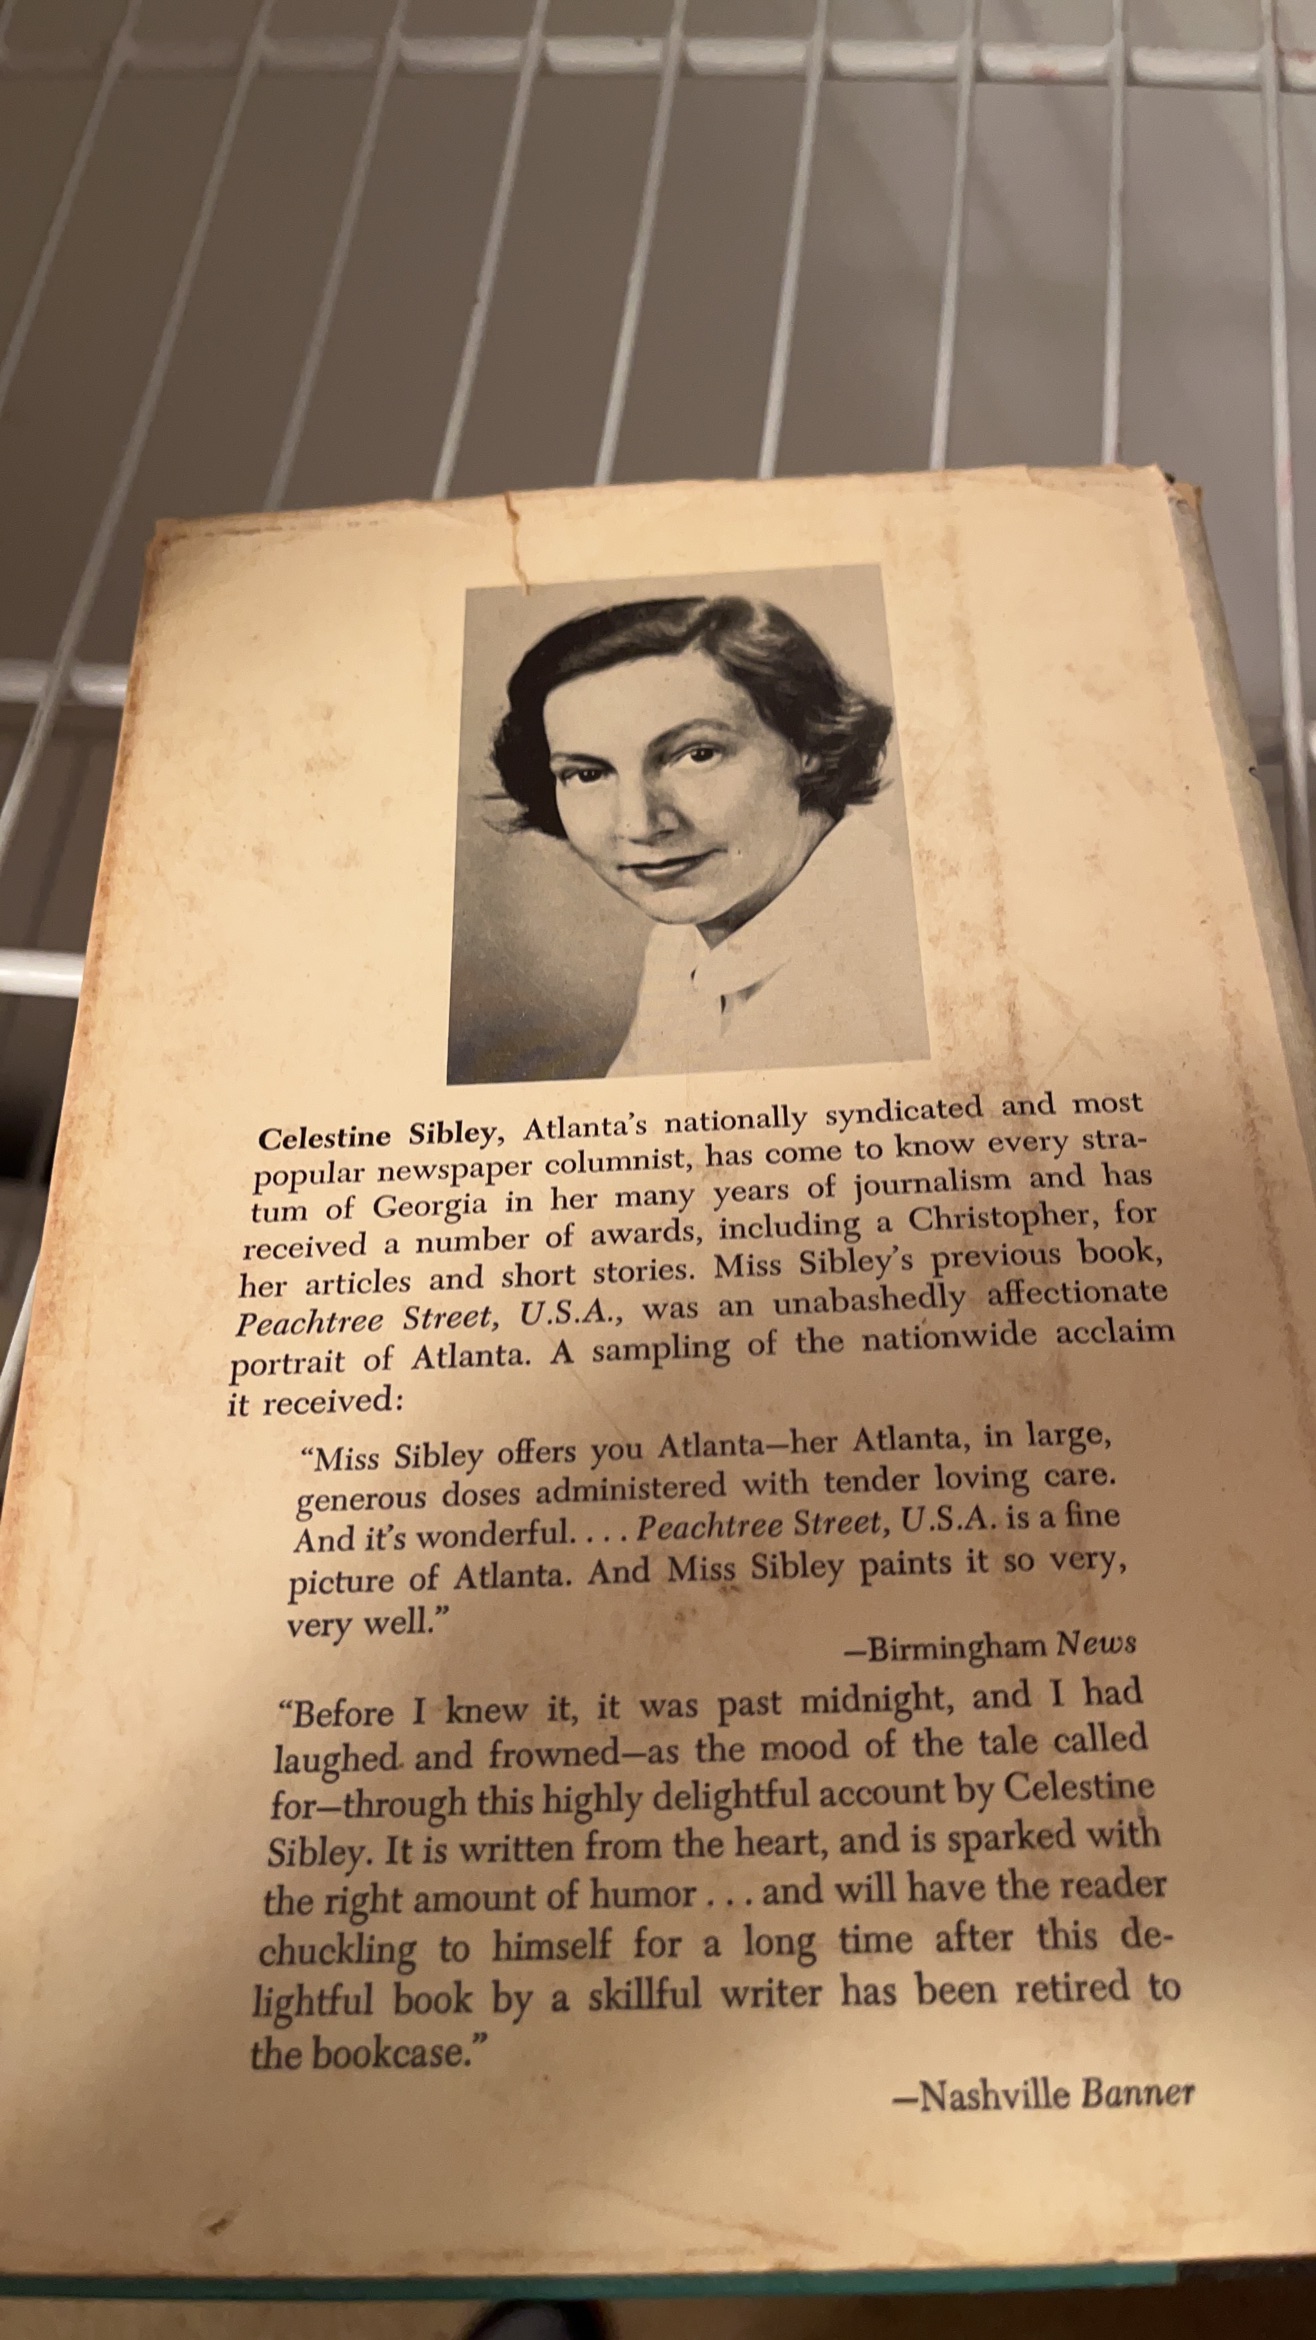 Celestine Sibley, Atlanta's nationally syndicated and most
popular newspaper columnist, has come to know every stra-
tum of Georgia in her many years of journalism and has
received a number of awards, including a Christopher, for
her articles and short stories. Miss Sibley's previous book,
Peachtree Street, U.S.A., was an unabashedly affectionate
portrait of Atlanta. A sampling of the nationwide acclaim
it received:
“Miss Sibley offers you Atlanta—her Atlanta, in large,
generous doses administered with tender loving care.
And it's wonderful. . . . Peachtree Street, U.S.A. is a fine
picture of Atlanta. And Miss Sibley paints it so very,
very well.”
—Birmingham News
“Before I knew it, it was past midnight, and I had
laughed and frowned—as the mood of the tale called
for—through this highly delightful account by Celestine
Sibley. It is written from the heart, and is sparked with
the right amount of humor . . . and will have the reader
chuckling to himself for a long time after this de-
lightful book by a skillful writer has been retired to
the bookcase.”
—Nashville Banner